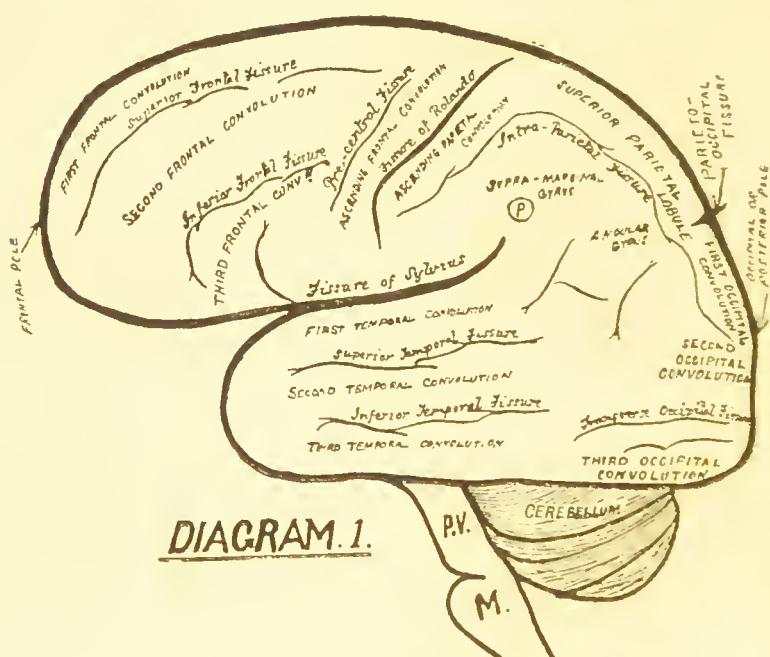 FIRST FRONTAL CONVOLUTION
Superior Frontal Fissure
SECOND FRONTAL CONVOLUTION
Inferior Frontal Fissure
THIRD FRONTAL CONVN
Pre-central Fissure
ASCENDING FRONTAL CONVOLUTION
Fissure of Rolando
ASCENDING PARIETAL
CONVOLUTION
Intra-Parietal Fissure
SUPERIOR PARIETAL
LOBULE
PARIETO-
OCCIPITAL
FISSURE
SUPRA-MARGINAL
GYRUS
P
ANGULAR
GYRUS
FIRST OCCIPITAL
CONVOLUTION
OCCIPITAL OR
POSTERIOR POLE
FRONTAL POLE
Fissure of Sylvius
FIRST TEMPORAL CONVOLUTION
Superior Temporal Fissure
SECOND TEMPORAL CONVOLUTION
Inferior Temporal Fissure
THIRD TEMPORAL CONVOLUTION
SECOND
OCCIPITAL
CONVOLUTION
Transverse Occipital Fissure
THIRD OCCIPITAL
CONVOLUTION
CEREBELLUM
P.V.
M.
DIAGRAM.1.